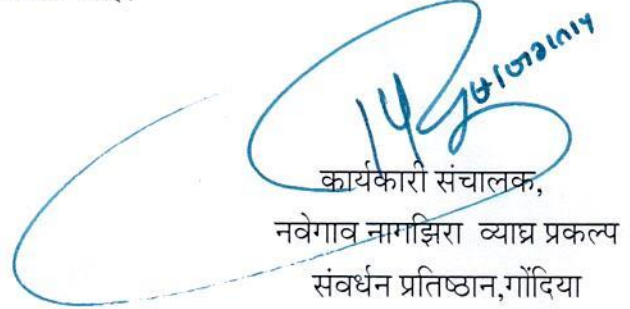 कार्यकारी संचालक,
नवेगाव नागझिरा व्याघ्र प्रकल्प
संवर्धन प्रतिष्ठान,गोंदिया